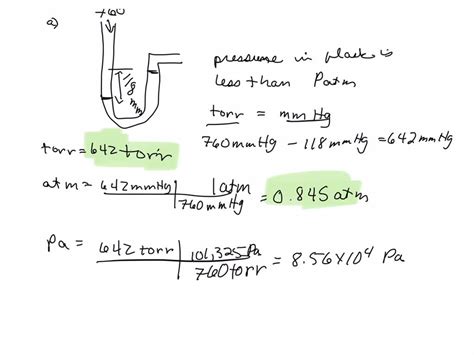 a)
760
118
mm
pressure in flask is
less than Patm
torr = mm Hg
760 mmHg - 118 mmHg = 642 mmHg
torr = 642 torr
atm = 642 mmHg | 1 atm
760 mmHg
= 0.845 atm
Pa = 642 torr | 101,325 Pa
760 torr
= 8.56 x 10⁴ Pa